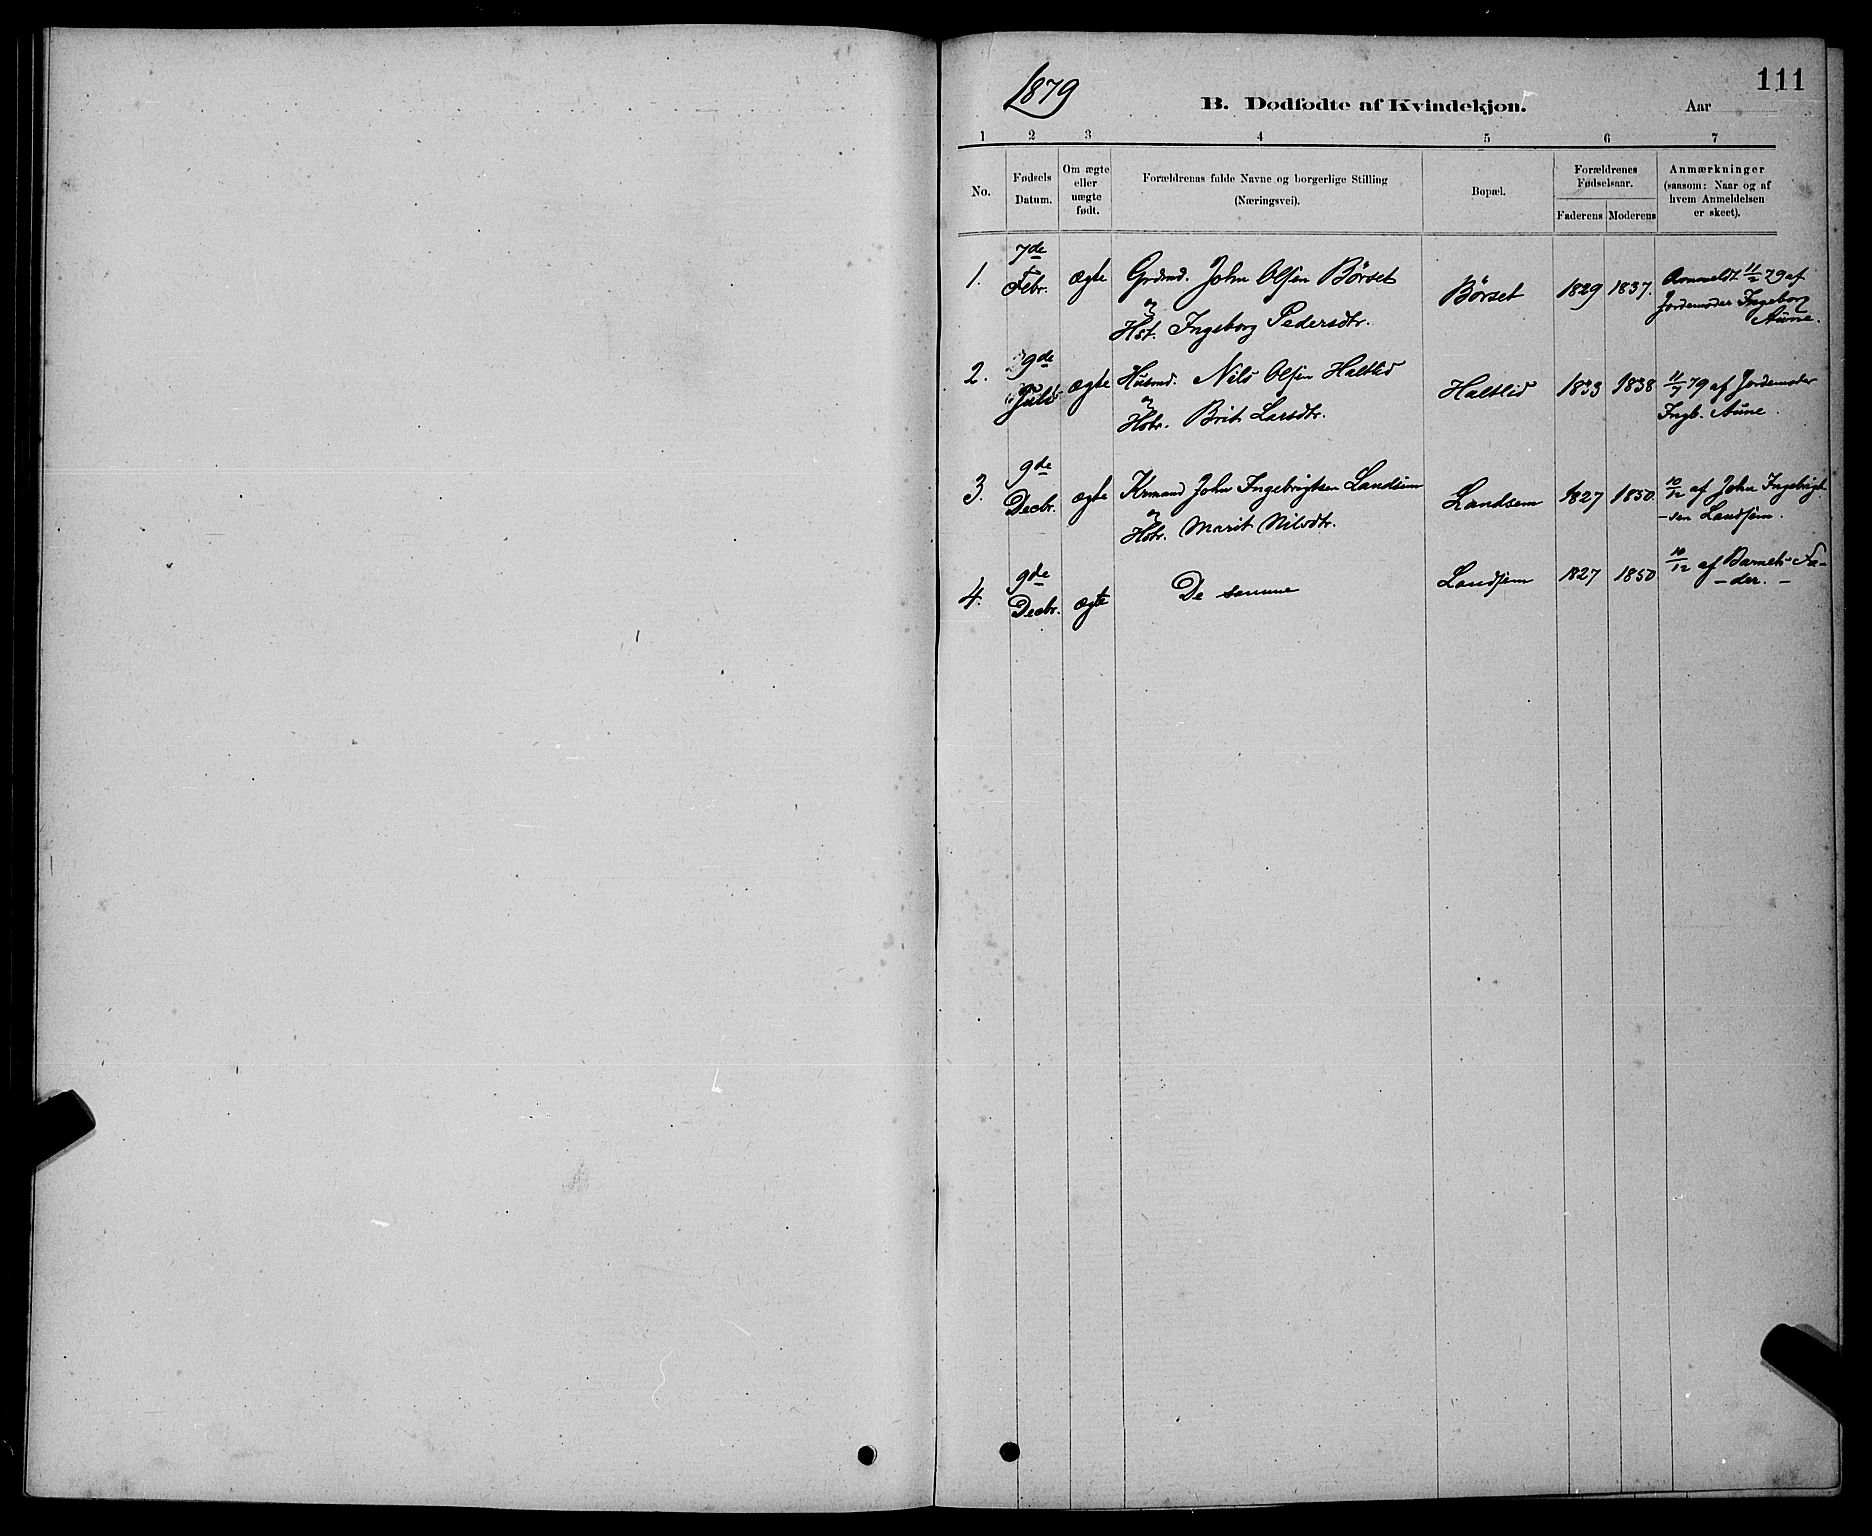 111
1879
B. Dødfødte af Kvindekjøn.
Aar
1 2 3 4 5 6 7
No.
Fødsels
Datum.
Om ægte
eller
uægte
født.
Forældrenas fulde Navne og borgerlige Stilling
(Næringsvei).
Bopæl.
Forældrenes
Fødselsaar.
Faderens Moderens
Anmærkninger
(saasom: Naar og af
hvem Anmeldelsen
er skeet).
1.
7de
Febr.
ægte
Grdmd. John Olsen Börset
og
Hst. Ingeborg Pedersdtr.
Börset
1829 1837.
Anmeldt 11/2 79 af
Jordemoder Ingeborg
Aune.
2.
9de
Juli
ægte
Husmd. Nils Olsen Haltlid
og
Hstr. Brit Larsdtr.
Haltlid
1833 1838
11/7 79 af Jordemoder
Ingb. Aune.
3.
9de
Decbr.
ægte
Krmand John Ingebrigtsen Landsem
og
Hstr. Marit Nilsdtr.
Landsem
1827 1850.
10/12 af John Ingebrigt-
-sen Landsem.
4.
9de
Decbr.
ægte
De samme
Landsem
1827 1850
10/12 af Barnets Fa-
-der. -